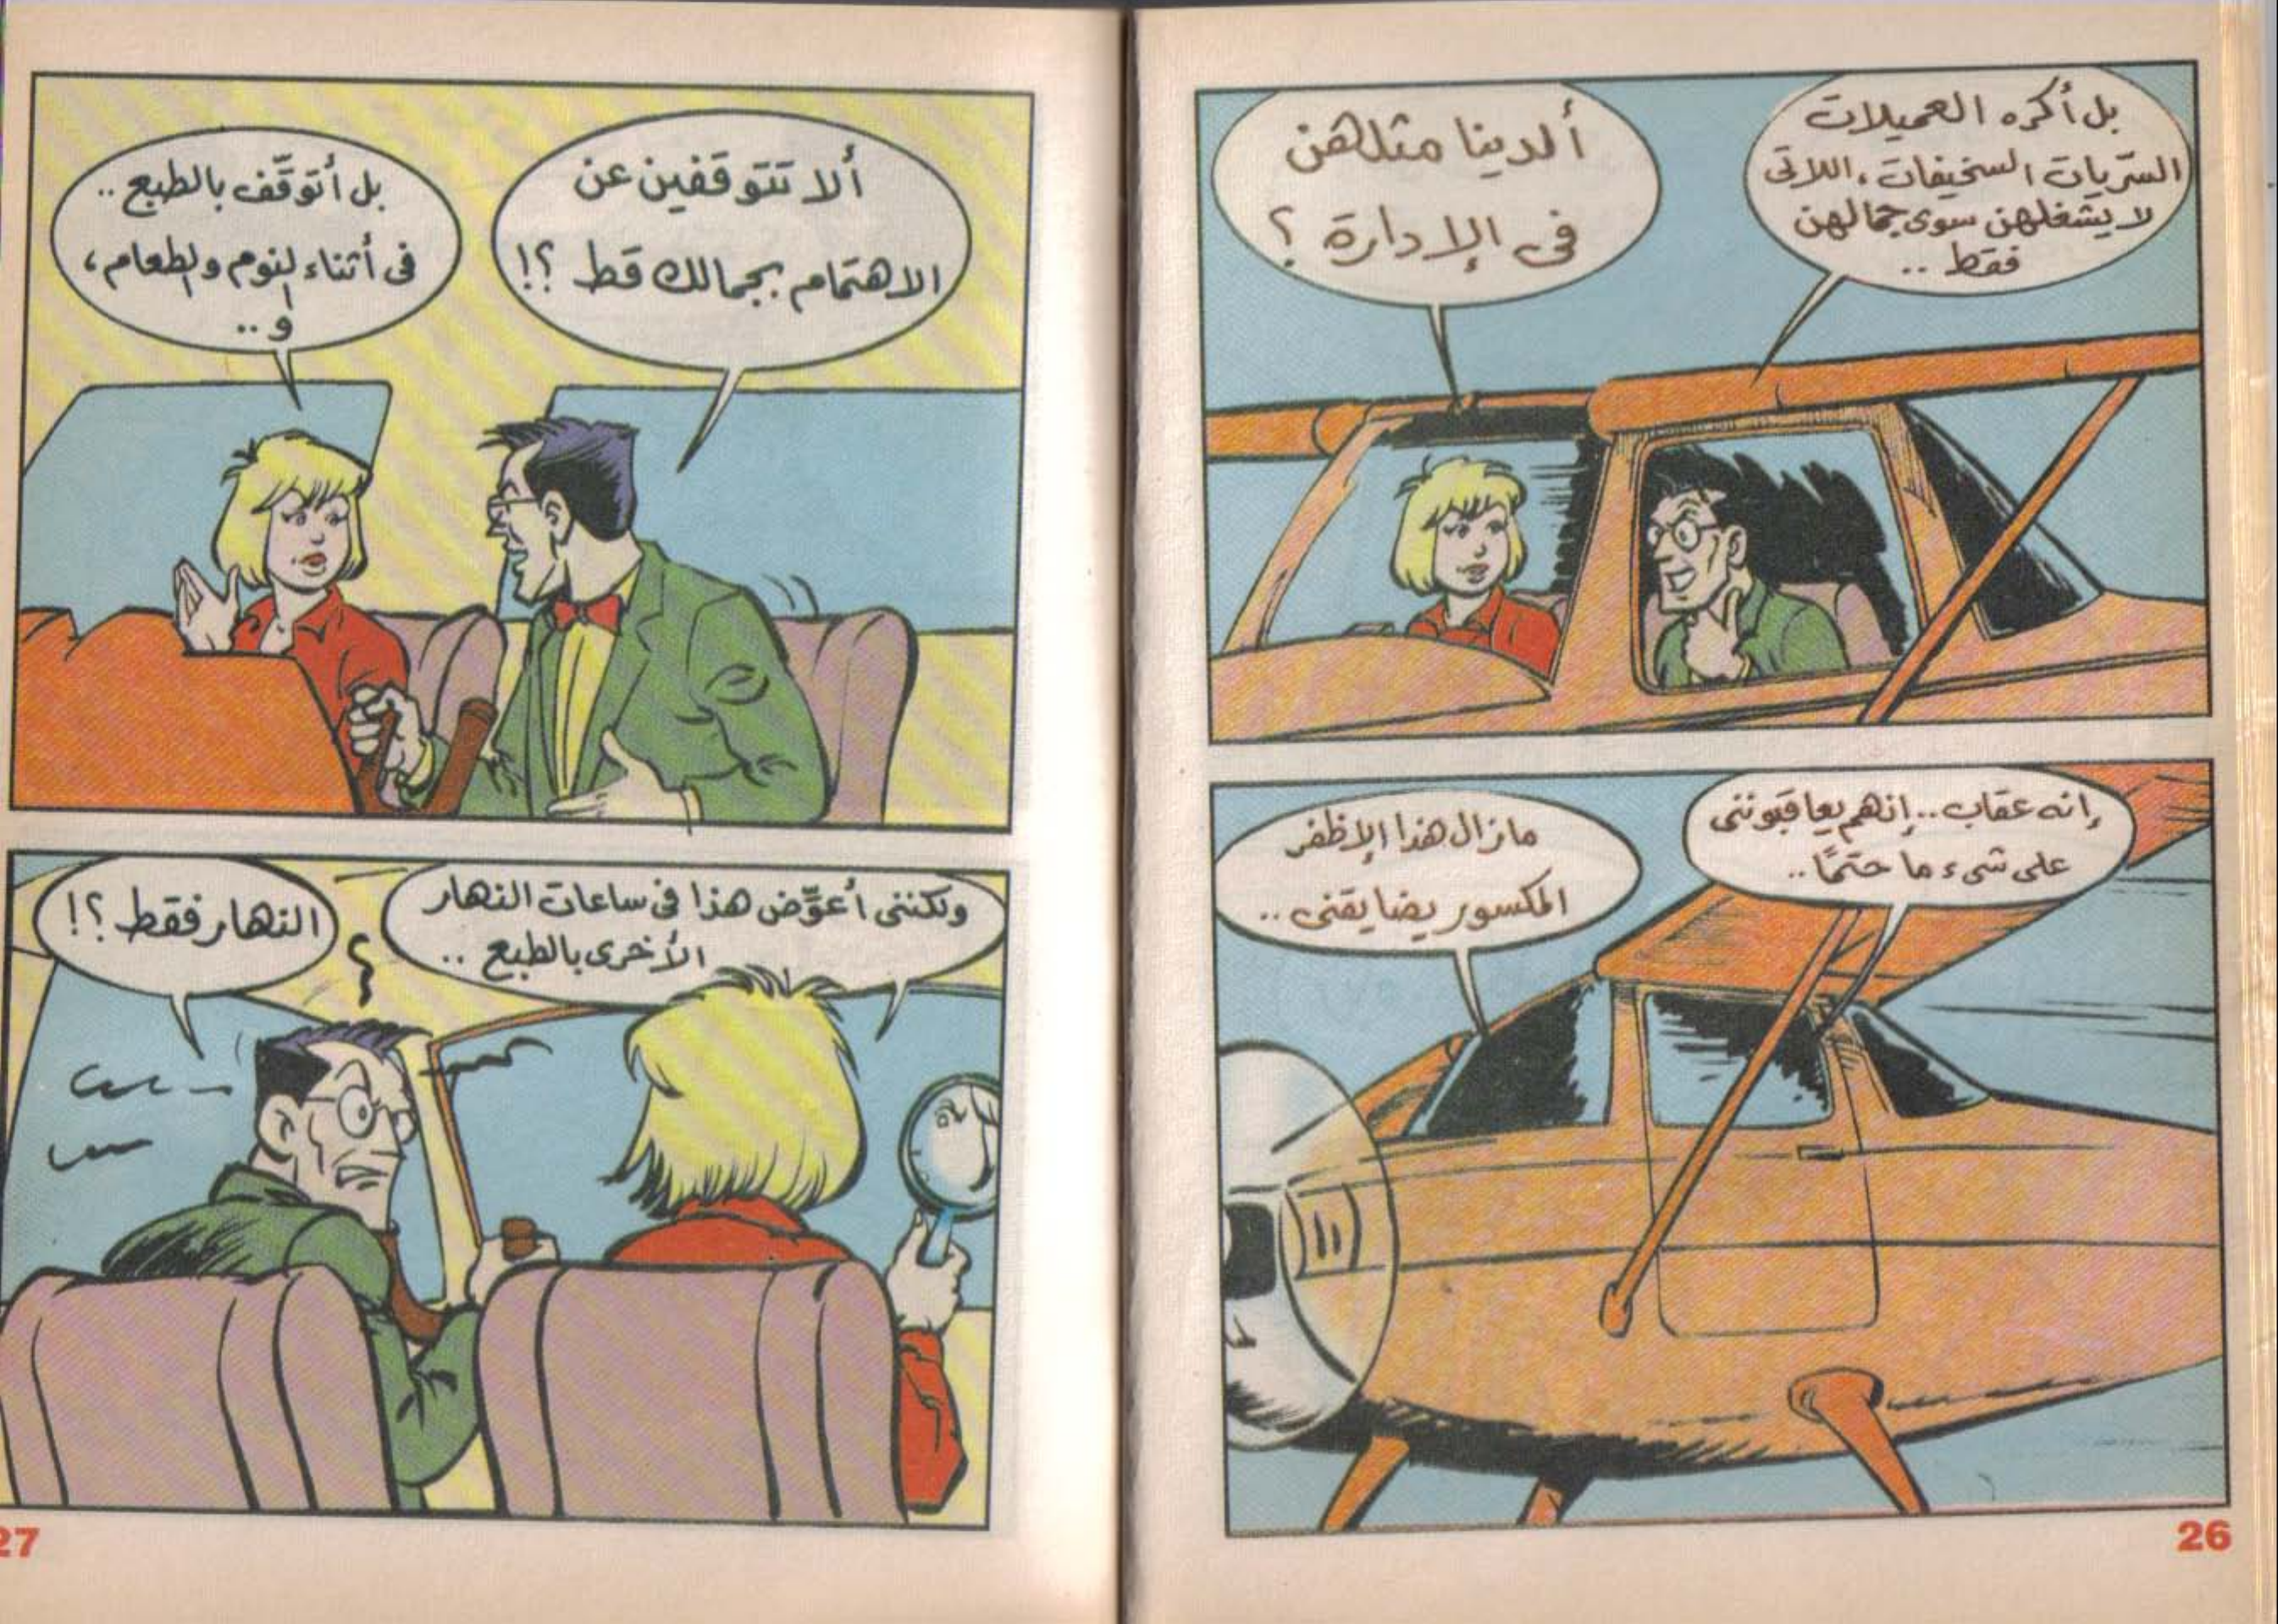 بل أكره العميلات
السّريات السخيفات، اللاتى
لا يشغلهن سوى جمالهن
فقط ..
ألدينا مثلهن
فى الإدارة ؟
إنه عقاب .. إنهم يعاقبوننى
على شىء ما حتمًا ..
مازال هذا الإظفر
المكسور يضايقنى ..
26
ألا تتوقفين عن
الاهتمام بجمالك قط ؟!
بل أتوقّف بالطبع ..
فى أثناء النوم والطعام،
و ..
ولكننى أعوِّض هذا فى ساعات النهار
الأخرى بالطبع ..
النهار فقط ؟!
27